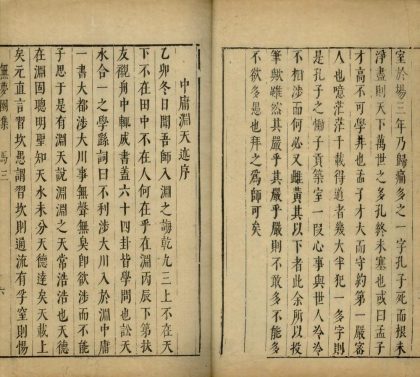 室於場三年乃歸痛之一字孔子死而根未
淨盡則天下萬世之多孔終未塞也或曰孟子
才高不可學葬也孟子才大而守約第一嚴密
人也噫茫茫千載得道者幾大半犯一多字則
是孔子之慟子貢築室一段心事與世人泠泠
不相涉而何必又雌黃其以下者此余所以投
筆歟雖然其嚴乎其嚴乎嚴則不敢多不能多
不欲多愚也拜之為師可矣
中庸淵天述序
乙卯冬日聞吾師入淵之誨乾九三上不在天
下不在田中不在人何在乎在淵丙辰下第扶
友襯舟中輒書蓋六十四卦皆學問也訟天
水合一之學繇詞曰不利涉大川入於淵中庸
一書大都涉大川事無聲無臭即欲涉而不能
子思于是有淵天說淵淵之天常浩浩也天德
在淵固聰明聖知天水未分天德達矣天載上
矣元直言習坎愚謂習坎則過流有孚窒則惕
無夢園集 馬三 六